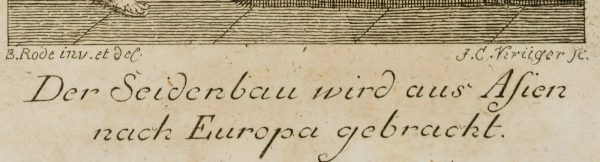 B. Rode inv. et del.
J. C. Krüger sc.
Der Seidenbau wird aus Aſien
nach Europa gebracht.